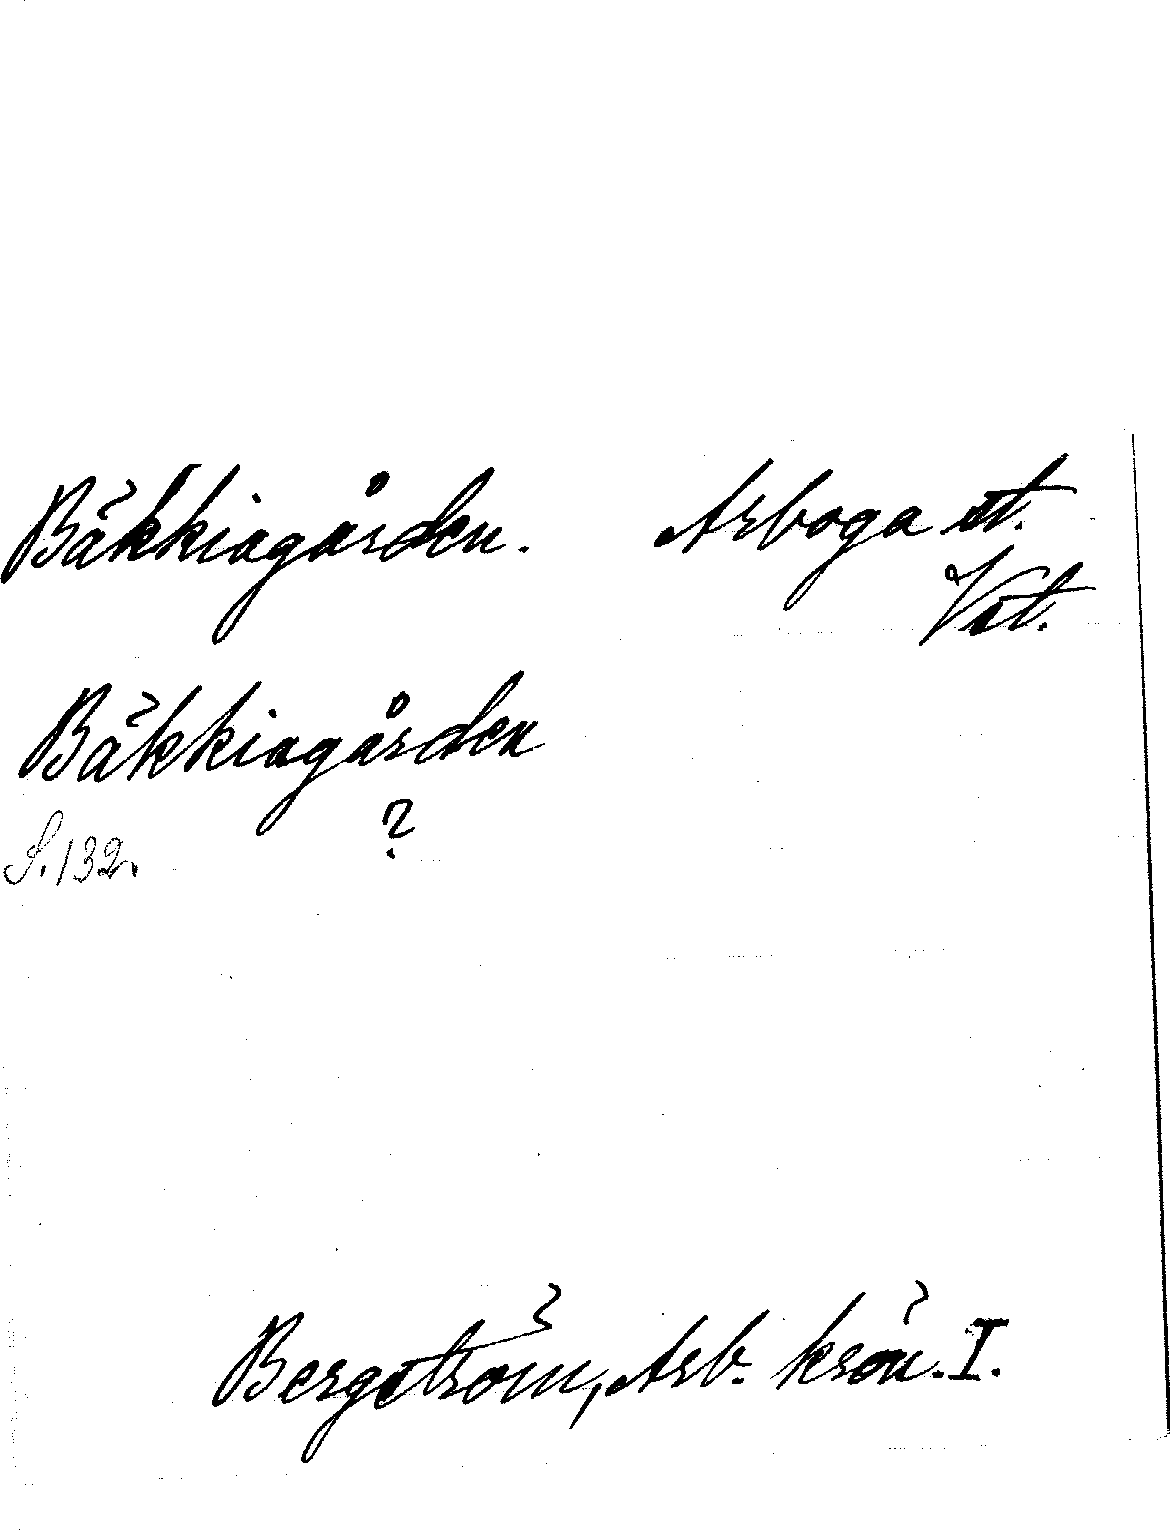 Bäkkiagården. Arboga st.
Vst.
Bäkkiagården
?
S. 132.
Bergström, Arb. krön. I.